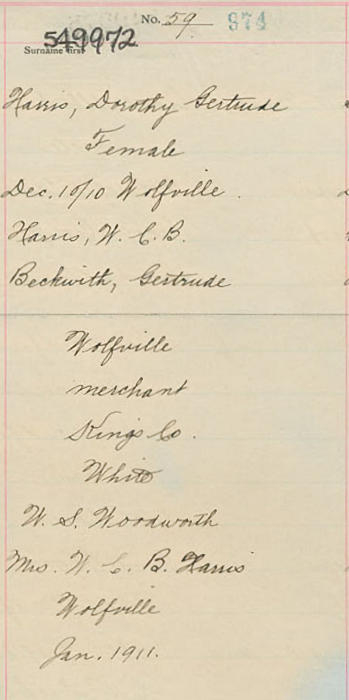 No. 59 874
549972
Surname first
Harris, Dorothy Gertrude
Female
Dec. 10/10 Wolfville.
Harris, W. C. B.
Beckwith, Gertrude
Wolfville
merchant
Kings Co.
White
W. S. Woodworth
Mrs. W. C. B. Harris
Wolfville
Jan. 1911.